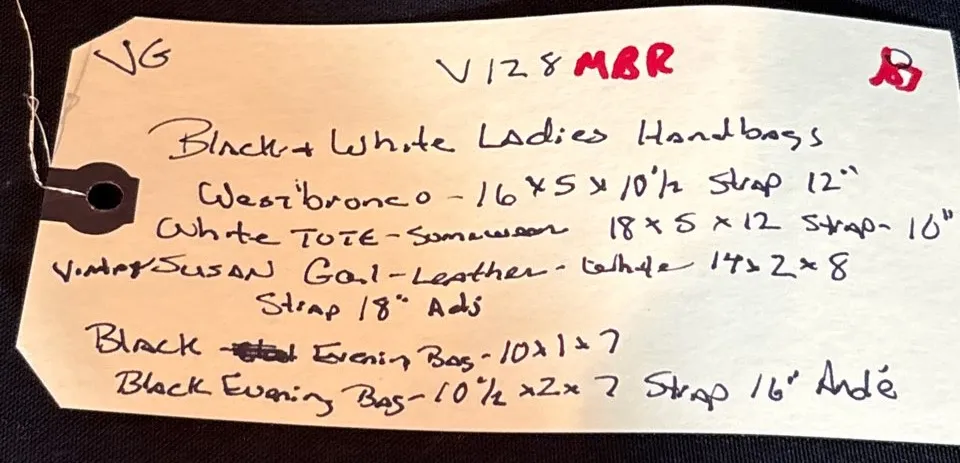 VG V128 MBR
Black + White Ladies Handbags
West bronco - 16 x 5 x 10 1/2 Strap 12"
White TOTE - 18 x 5 x 12 Strap - 10"
Vintage SUSAN Gail - Leather - White 14 x 2 x 8
Strap 18" Adj
Black - Evening Bag - 10 x 1 x 7
Black Evening Bag - 10 1/2 x 2 x 7 Strap 16" Andé